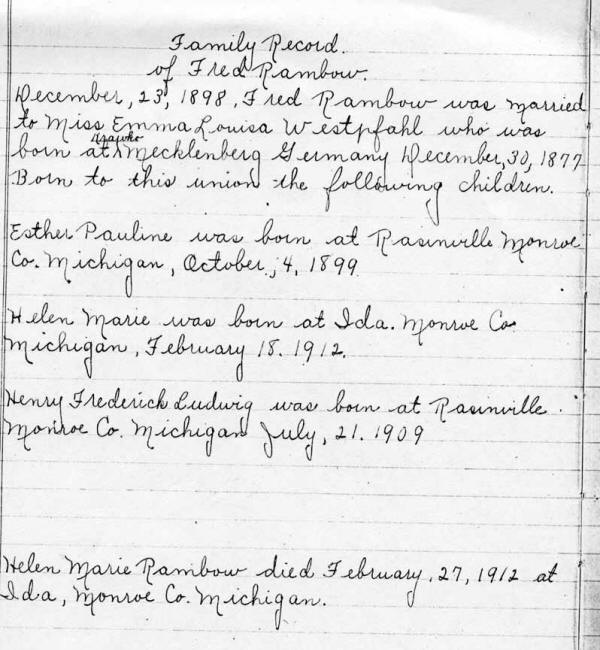 Family Record.
of Fred Rambow.
December, 23, 1898, Fred Rambow was married
to Miss Emma Louisa Westpfahl who was
born at Mecklenberg Germany December, 30, 1877
Born to this union the following children.
Esther Pauline was born at Rasinville Monroe
Co. Michigan, October, 4, 1899
Helen Marie was born at Ida. Monroe Co.
Michigan, February 18. 1912.
Henry Frederick Ludwig was born at Rasinville.
Monroe Co. Michigan July, 21. 1909
Helen Marie Rambow died February, 27, 1912 at
Ida, Monroe Co. Michigan.